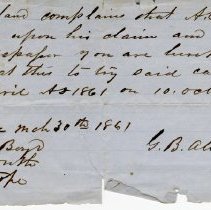 land complains that A
upon his claim and
spaper you are here
at this to try said ca
ril AD 1861 on 10. oct
mch 30th 1861
Boyd
G. B. Al